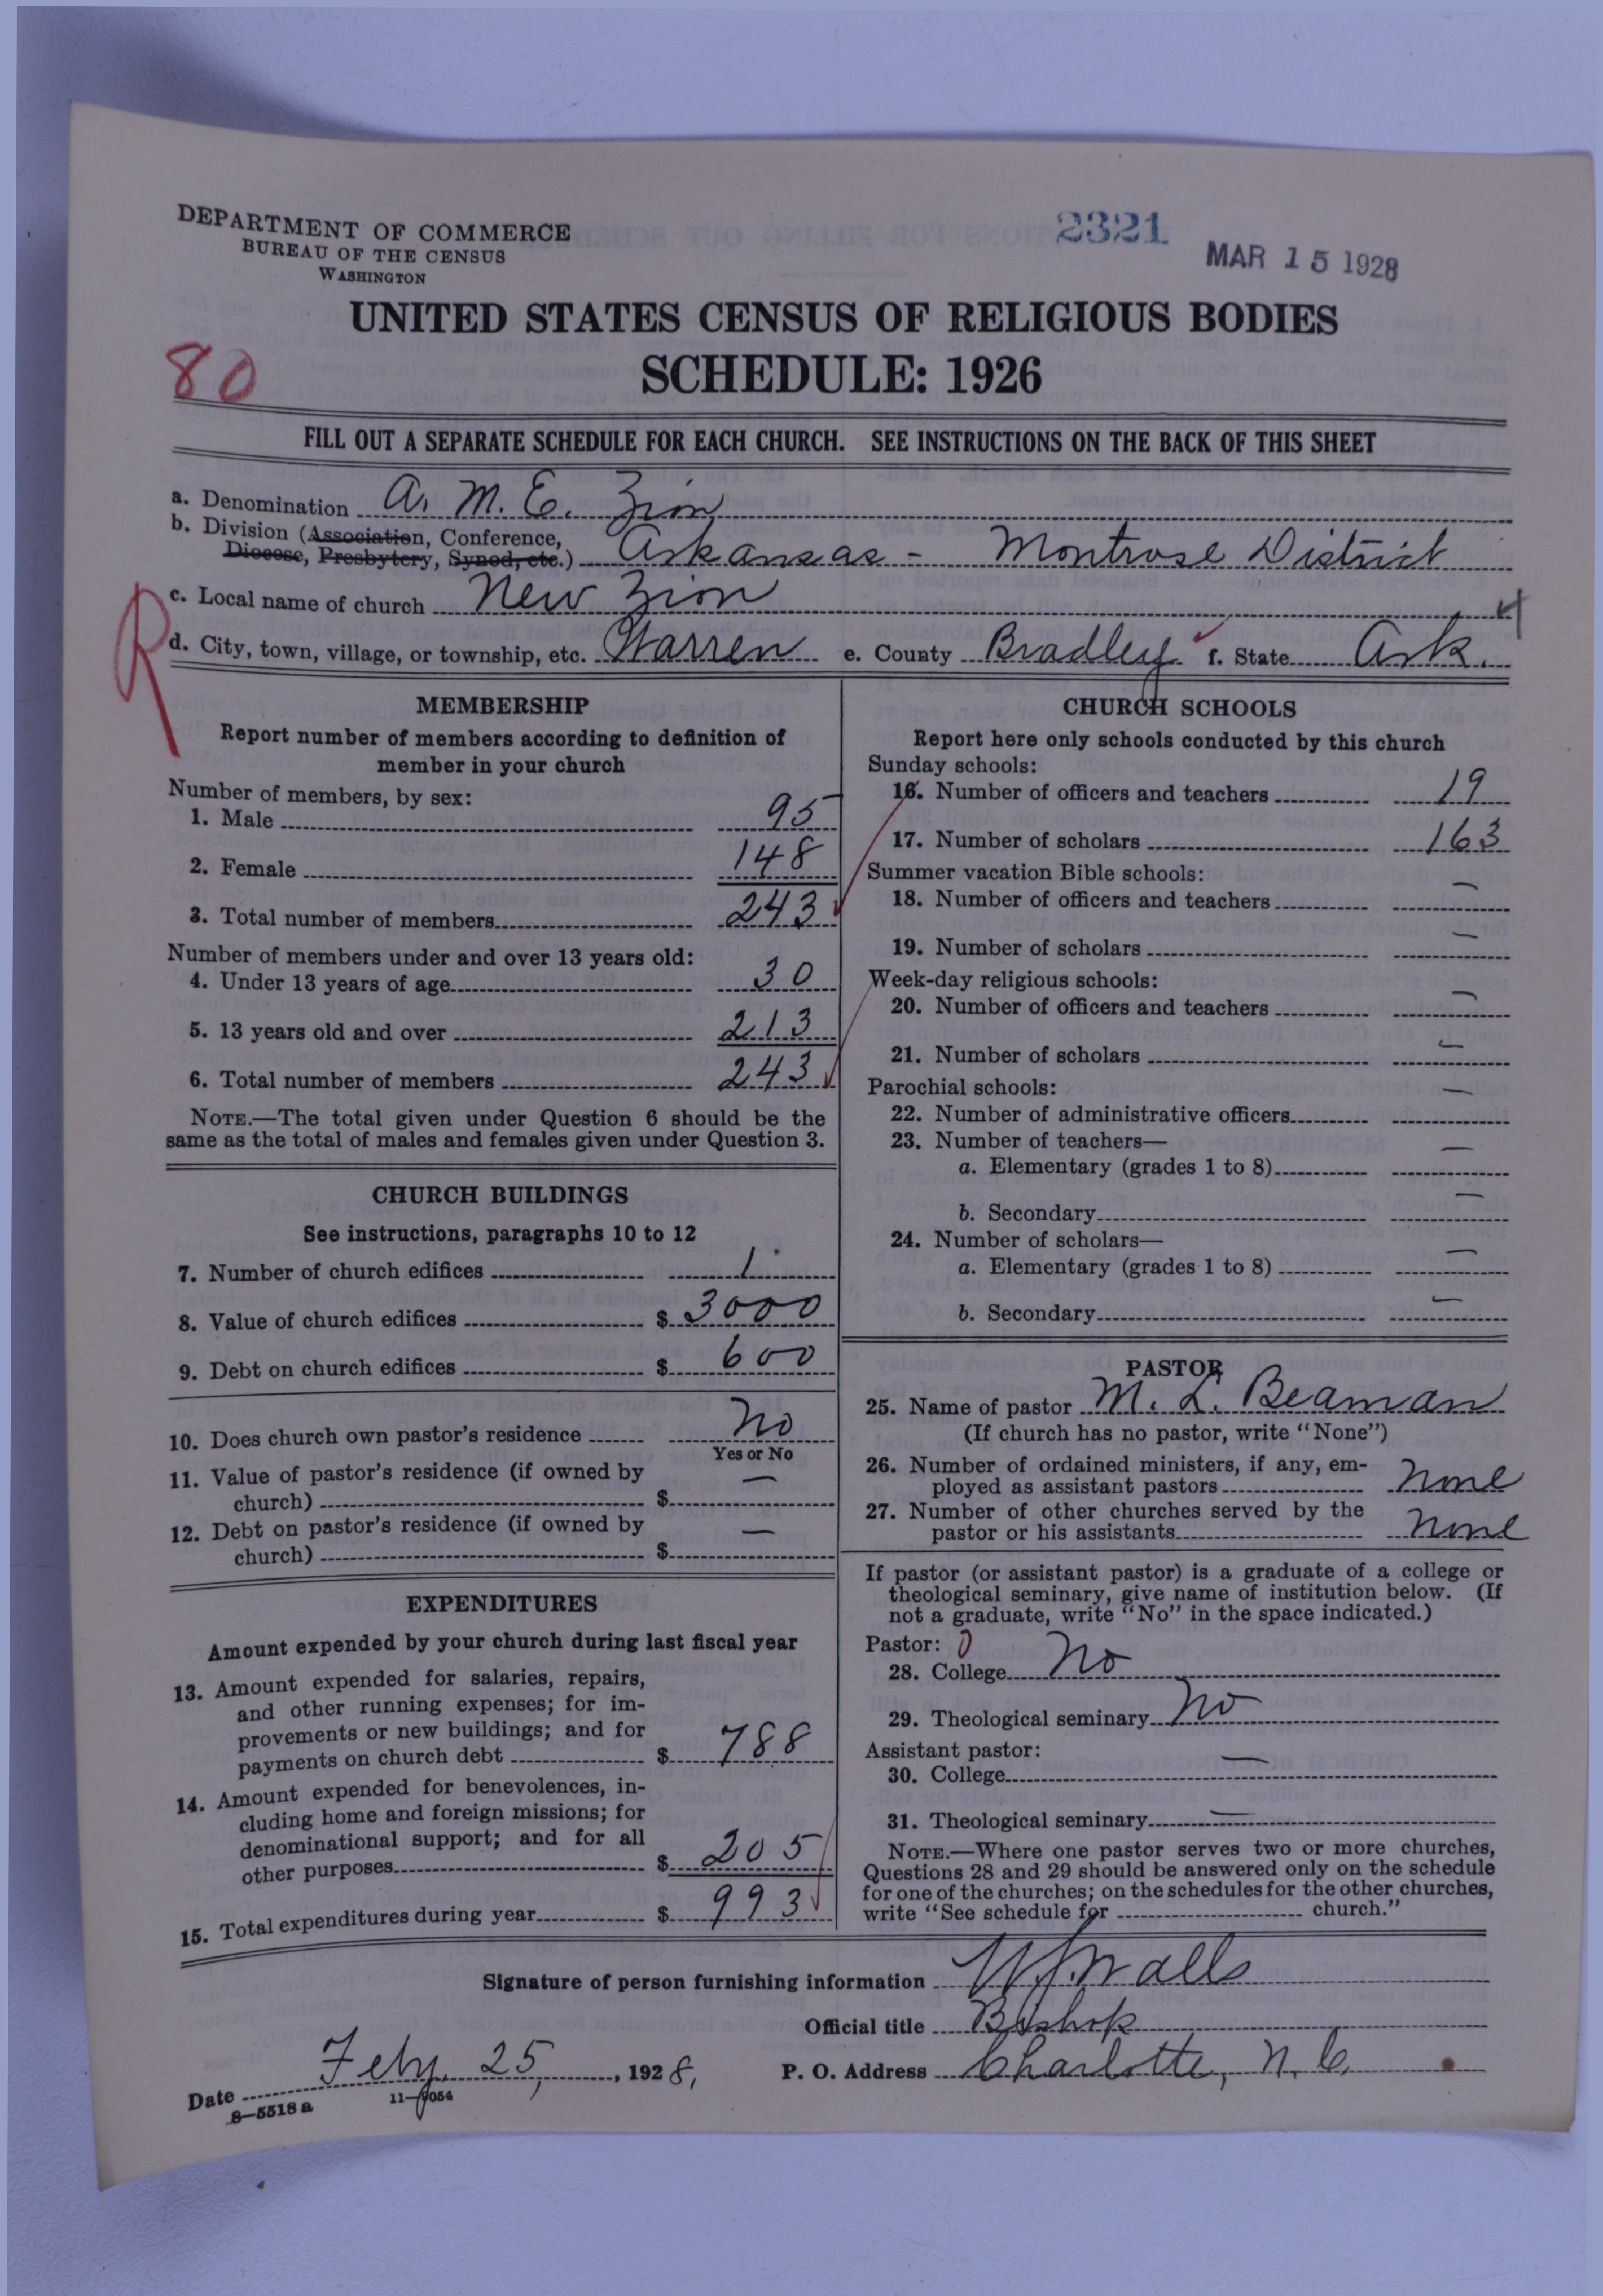 DEPARTMENT OF COMMERCE
BUREAU OF THE CENSUS
WASHINGTON
2321
MAR 15 1928
UNITED STATES CENSUS OF RELIGIOUS BODIES
SCHEDULE: 1926
80
FILL OUT A SEPARATE SCHEDULE FOR EACH CHURCH. SEE INSTRUCTIONS ON THE BACK OF THIS SHEET
a. Denomination A. M. E. Zion
b. Division (Association, Conference,
Diocese, Presbytery, Synod, etc.) Arkansas - Montrose District
c. Local name of church New Zion
R
d. City, town, village, or township, etc. Warren e. County Bradley f. State Ark.
MEMBERSHIP
Report number of members according to definition of
member in your church
Number of members, by sex:
1. Male 95
2. Female 148
3. Total number of members 243
Number of members under and over 13 years old:
4. Under 13 years of age 30
5. 13 years old and over 213
6. Total number of members 243
NOTE.—The total given under Question 6 should be the
same as the total of males and females given under Question 3.
CHURCH BUILDINGS
See instructions, paragraphs 10 to 12
7. Number of church edifices 1
8. Value of church edifices $ 3000
9. Debt on church edifices $ 600
10. Does church own pastor's residence No
Yes or No
11. Value of pastor's residence (if owned by
church) $ —
12. Debt on pastor's residence (if owned by
church) $ —
EXPENDITURES
Amount expended by your church during last fiscal year
13. Amount expended for salaries, repairs,
and other running expenses; for im-
provements or new buildings; and for
payments on church debt $ 788
14. Amount expended for benevolences, in-
cluding home and foreign missions; for
denominational support; and for all
other purposes $ 205
15. Total expenditures during year $ 993
CHURCH SCHOOLS
Report here only schools conducted by this church
Sunday schools:
16. Number of officers and teachers 19
17. Number of scholars 163
Summer vacation Bible schools:
18. Number of officers and teachers —
19. Number of scholars —
Week-day religious schools:
20. Number of officers and teachers —
21. Number of scholars —
Parochial schools:
22. Number of administrative officers —
23. Number of teachers—
a. Elementary (grades 1 to 8) —
b. Secondary —
24. Number of scholars—
a. Elementary (grades 1 to 8) —
b. Secondary —
PASTOR
25. Name of pastor M. L. Beaman
(If church has no pastor, write "None")
26. Number of ordained ministers, if any, em-
ployed as assistant pastors None
27. Number of other churches served by the
pastor or his assistants None
If pastor (or assistant pastor) is a graduate of a college or
theological seminary, give name of institution below. (If
not a graduate, write "No" in the space indicated.)
Pastor: 0
28. College No
29. Theological seminary No
Assistant pastor:
30. College —
31. Theological seminary —
NOTE.—Where one pastor serves two or more churches,
Questions 28 and 29 should be answered only on the schedule
for one of the churches; on the schedules for the other churches,
write "See schedule for church."
Signature of person furnishing information W. J. Walls
Official title Bishop
Date Feby. 25, 1928, P. O. Address Charlotte, N. C.
8—5518 a 11—9054